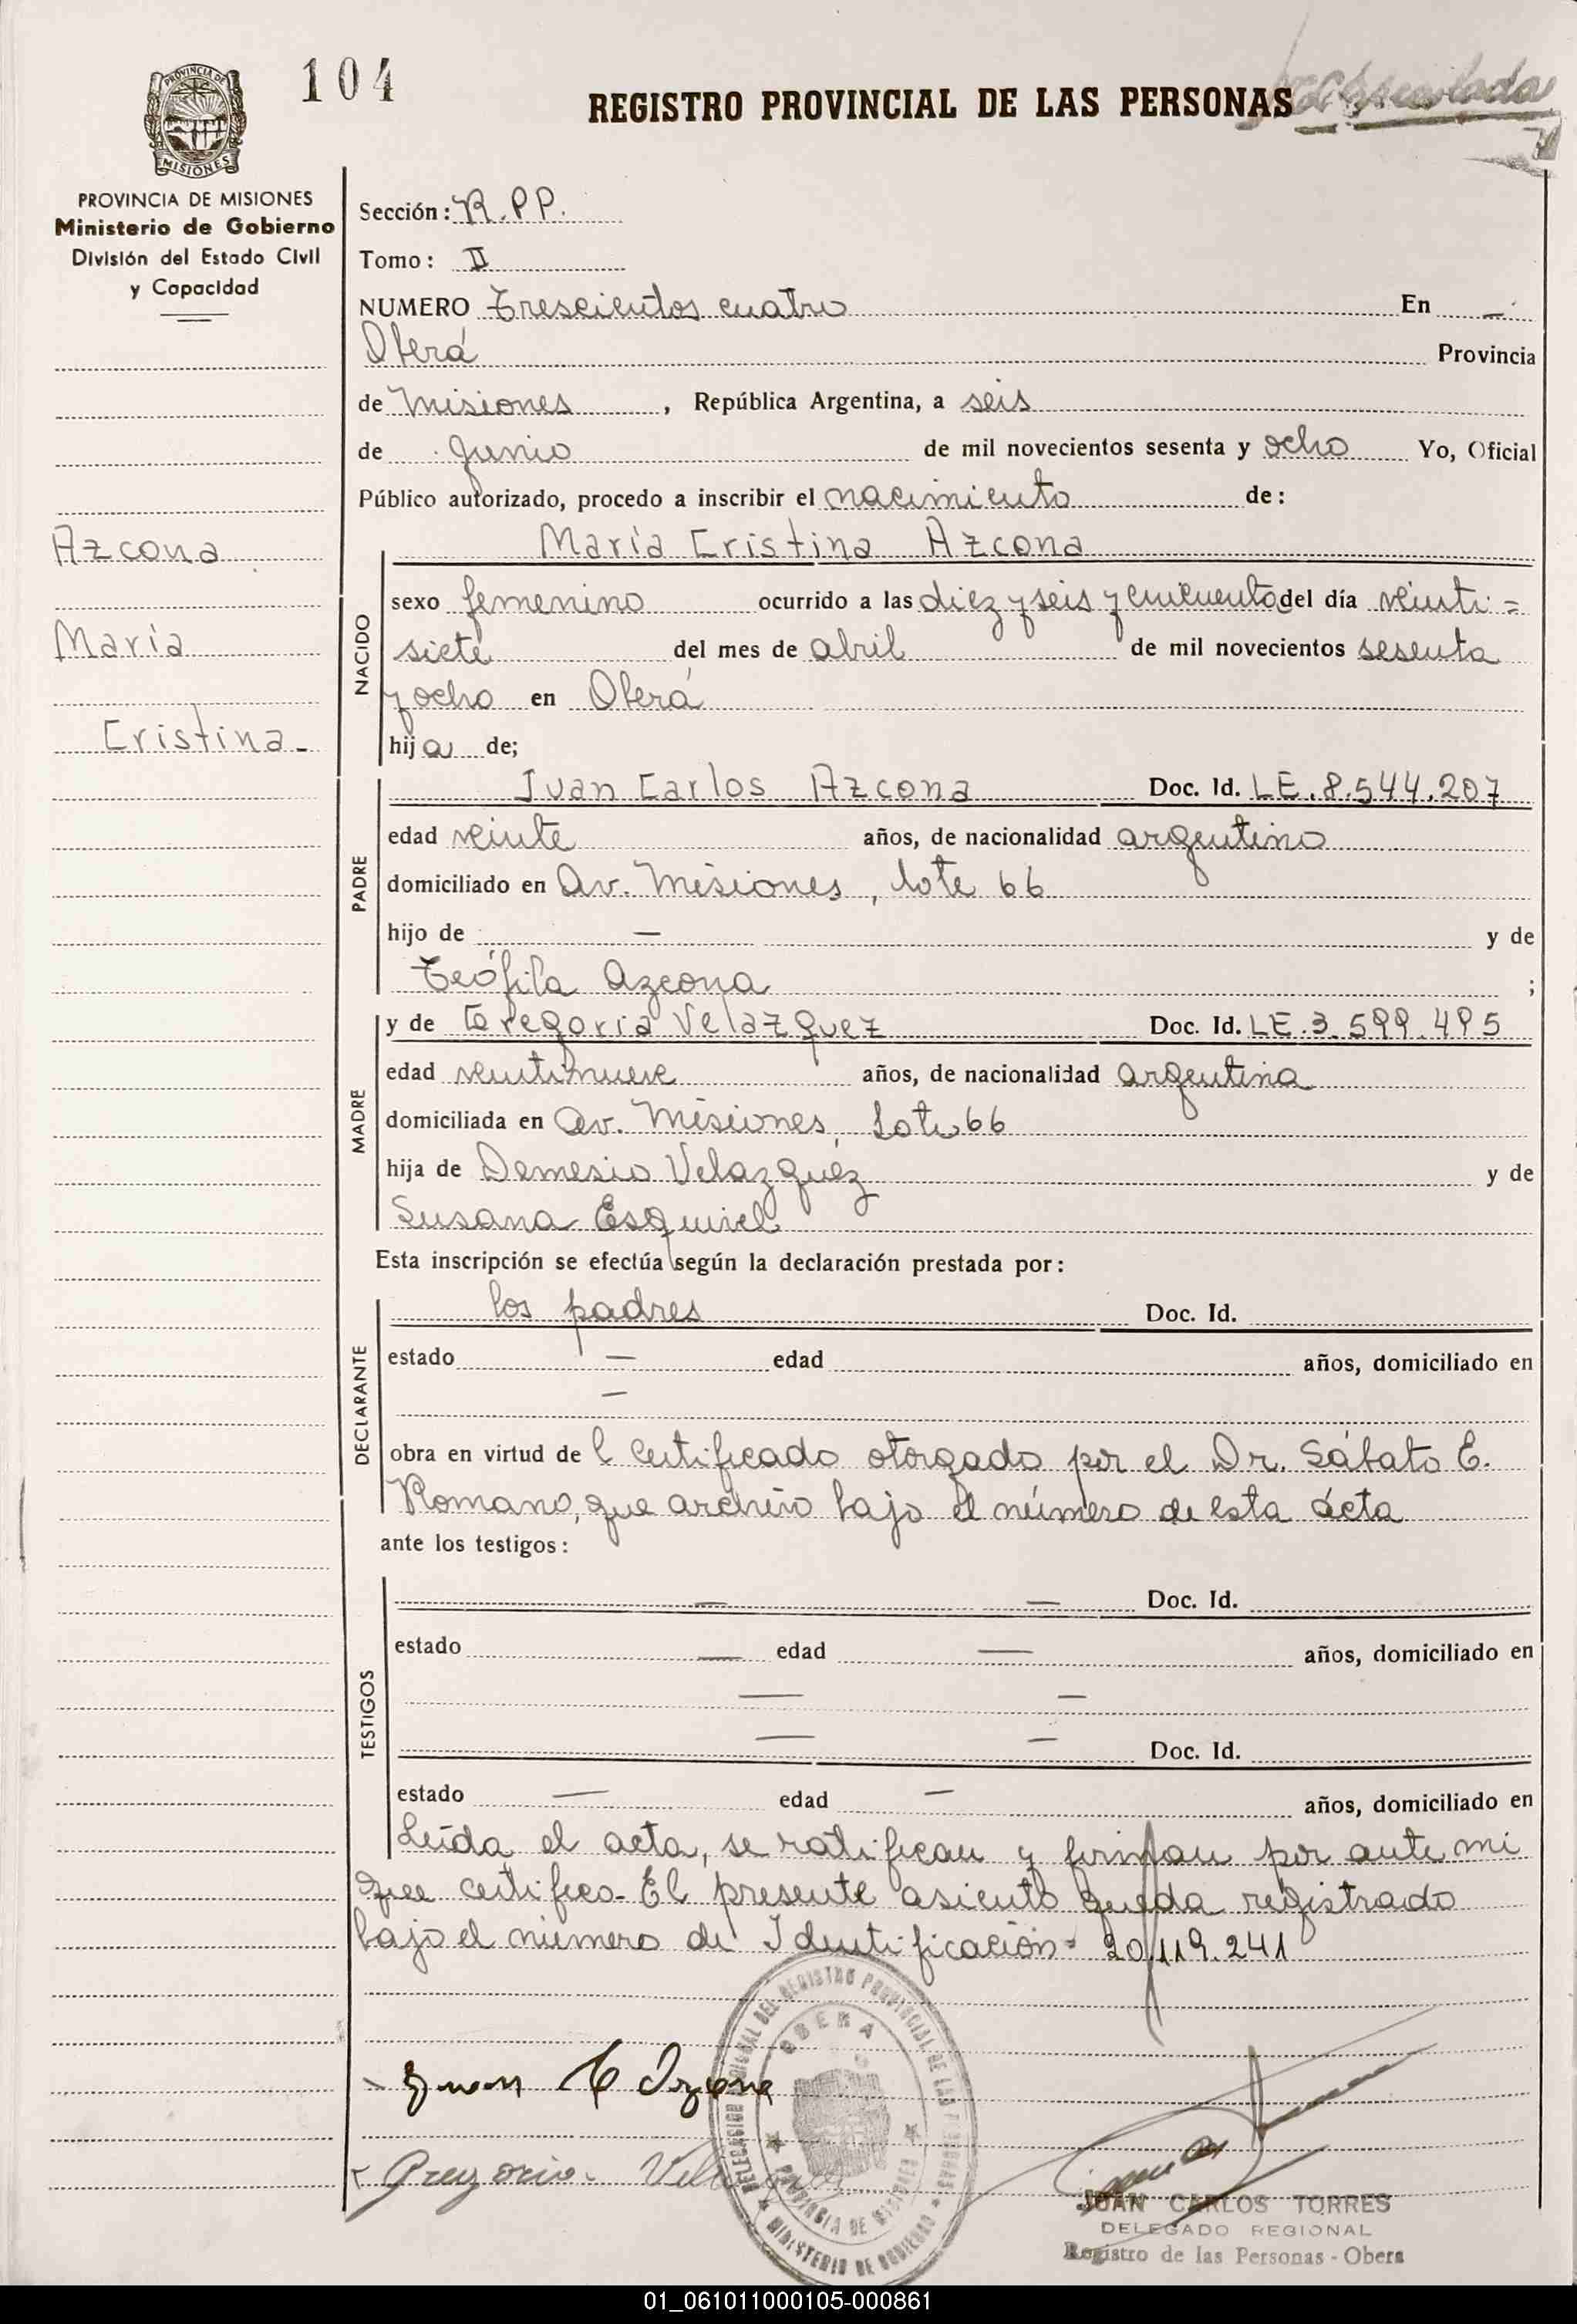 104
REGISTRO PROVINCIAL DE LAS PERSONAS
PROVINCIA DE MISIONES
Ministerio de Gobierno
División del Estado Civil
y Capacidad
Azcona
María
Cristina-
Sección: R.P.P.
Tomo: II
NUMERO Trescientos cuatro En -
Oberá Provincia
de Misiones, República Argentina, a seis
de Junio de mil novecientos sesenta y ocho Yo, Oficial
Público autorizado, procedo a inscribir el nacimiento de:
María Cristina Azcona
NACIDO
sexo femenino ocurrido a las diez y seis y cincuenta del día veinti=
siete del mes de abril de mil novecientos sesenta
y ocho en Oberá
hija de;
PADRE
Juan Carlos Azcona Doc. Id. LE.8.544.207
edad veinte años, de nacionalidad argentino
domiciliado en Av. Misiones, lote 66
hijo de - y de
Teófila Azcona ;
MADRE
y de Gregoria Velazquez Doc. Id. LE.3.599.495
edad veintinueve años, de nacionalidad argentina
domiciliada en Av. Misiones, Lote 66
hija de Demesio Velazquéz y de
Susana Esquivel
Esta inscripción se efectúa según la declaración prestada por:
DECLARANTE
los padres Doc. Id.
estado - edad años, domiciliado en
-
obra en virtud de l certificado otorgado por el Dr. Sábato E.
Romano, que archivo bajo el número de esta acta
ante los testigos:
TESTIGOS
- - Doc. Id.
estado - edad - años, domiciliado en
- -
- - Doc. Id.
estado - edad - años, domiciliado en
Leída el acta, se ratifican y firman por ante mi
que certifico- El presente asiento queda registrado
bajo el número de Identificación= 20.119.241
DELEGACION REGIONAL DEL REGISTRO PROVINCIAL DE LAS PERSONAS
OBERA
PROVINCIA DE MISIONES
MINISTERIO DE GOBIERNO
Juan C Azcona
Gregoria Velazquez
JUAN CARLOS TORRES
DELEGADO REGIONAL
Registro de las Personas - Obera
01_061011000105-000861